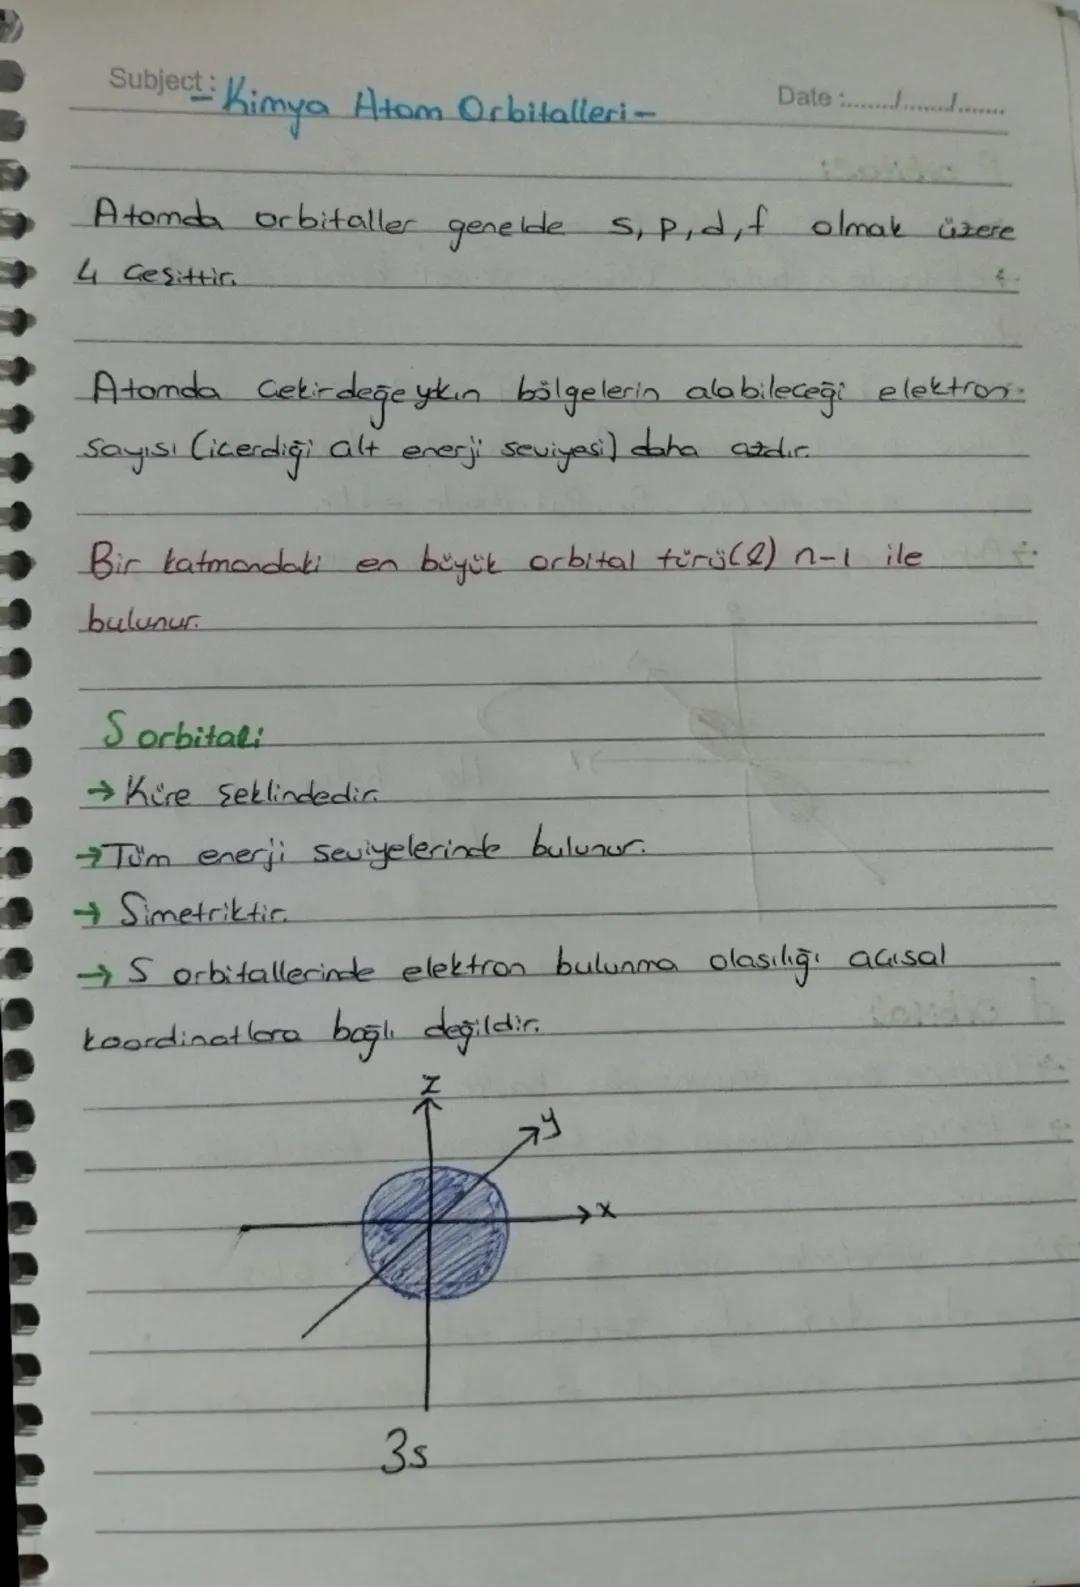 Subject: - Kimya Atom Orbitalleri -
Date :......./......./.......
Atomda orbitaller genelde s, p, d, f olmak üzere
4 çeşittir.
Atomda çekirdeğe ykın bölgelerin alabileceği elektron
sayısı (içerdiği alt enerji seviyesi) daha azdır.
Bir katmandaki en büyük orbital türü(l) n-1 ile
bulunur.
S orbitali
→ Küre şeklindedir.
→ Tüm enerji seviyelerinde bulunur.
→ Simetriktir.
→ S orbitallerinde elektron bulunma olasılığı açısal
koordinatlara bağlı değildir.
z
y
x
3s